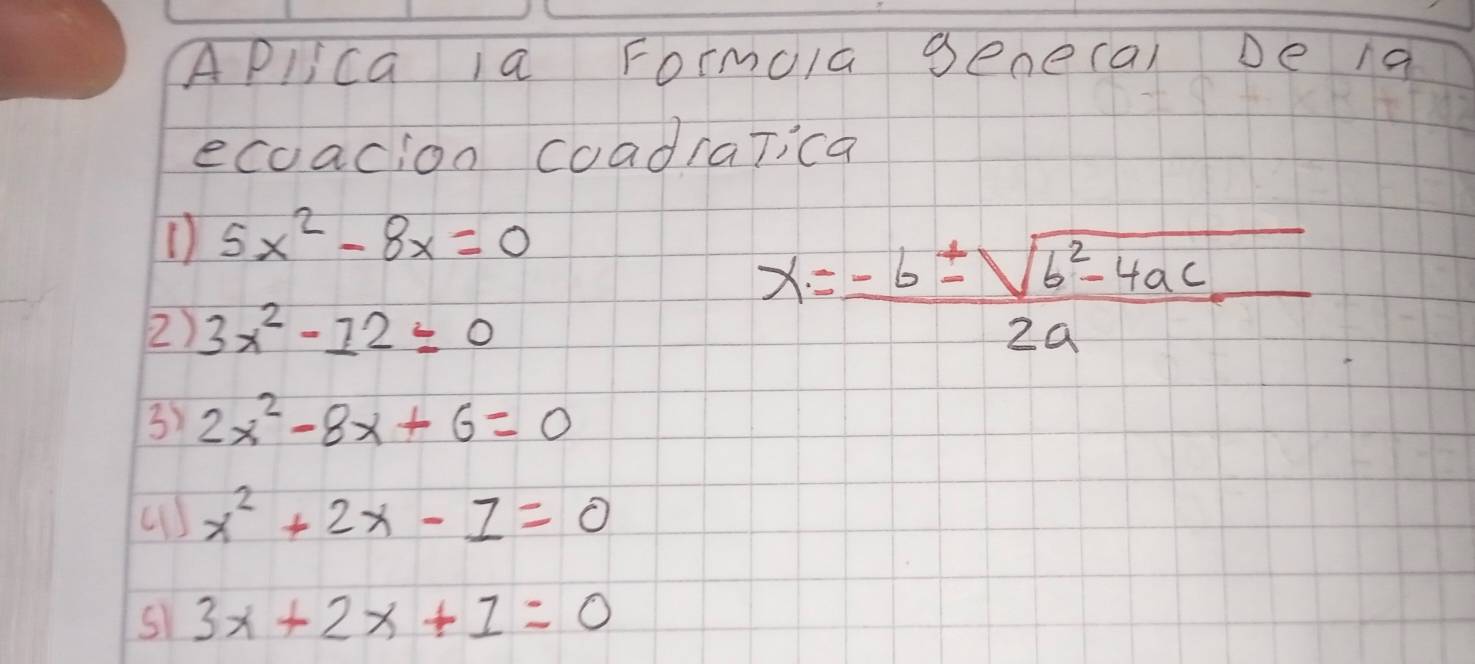 APlica la Formula general De la
ecuacion cuadraTica
1) 5x² - 8x = 0
x = -b ± √b² - 4ac
2a
2) 3x² - 12 = 0
3) 2x² - 8x + 6 = 0
4) x² + 2x - 1 = 0
5) 3x + 2x + 1 = 0